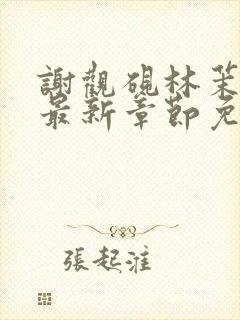 謝觀硯林茉
最新章節免
張起淮